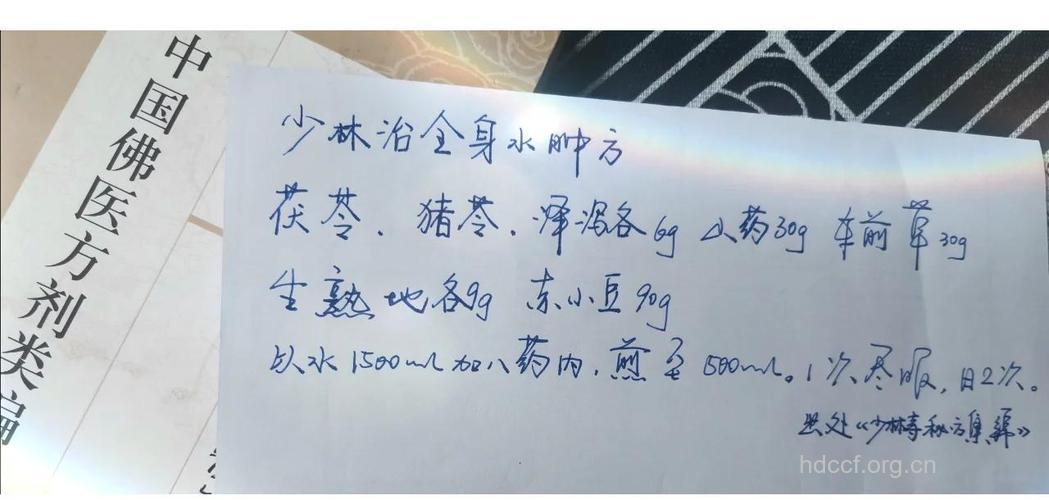 中国佛医方剂类编
少林治全身水肿方
茯苓、猪苓、泽泻各6g 山药30g 车前草30g
生熟地各9g 赤小豆90g
以水1500ml加入药内,煎至500ml。1次尽服,日2次。
出处《少林寺秘方集锦》
hdccf.org.cn